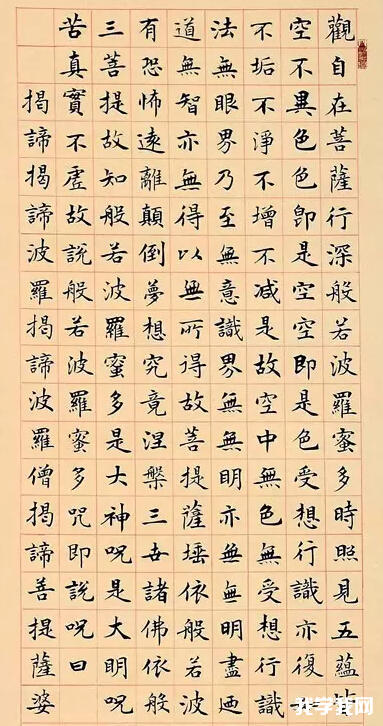 觀自在菩薩行深般若波羅蜜多時照見五蘊
空不異色色即是空空即是色受想行識亦復
不垢不淨不增不减是故空中無色無受想行識
法無眼界乃至無意識界無無明亦無無明盡廼
道無智亦無得以無所得故菩提薩埵依般若波
有恐怖遠離顛倒夢想究竟涅槃三世諸佛依般
三菩提故知般若波羅蜜多是大神呪是大明呪
苦真實不虛故說般若波羅蜜多咒即說呪曰
揭諦揭諦波羅揭諦波羅僧揭諦菩提薩婆